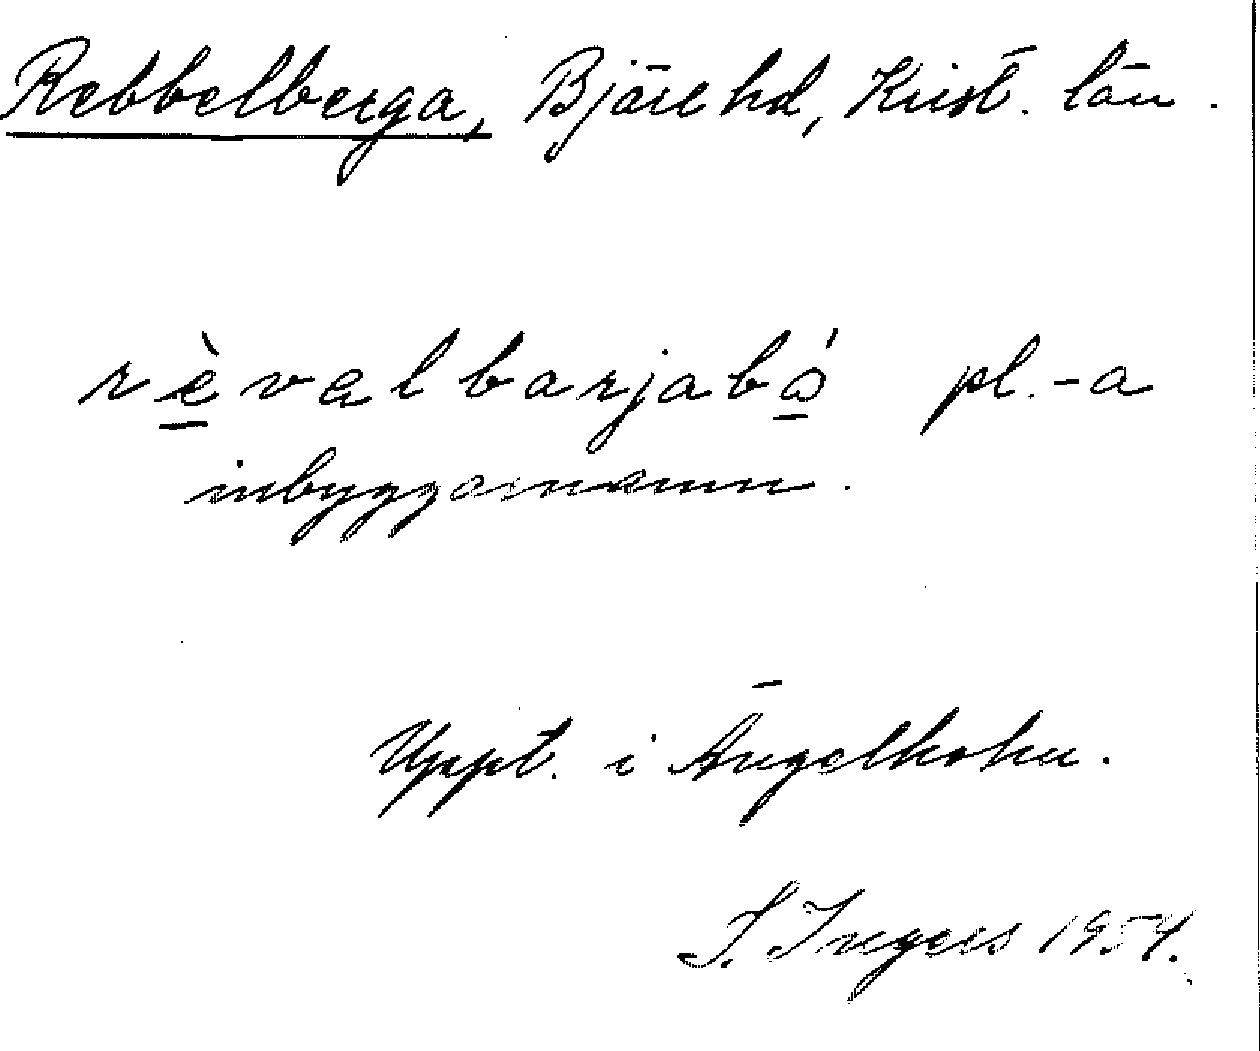 Rebbelberga, Bjäre hd, Krist. län.
rèvəlbarjabó pl.-a
inbyggarenamn.
Uppt. i Ängelholm.
I. Ingers 1954.